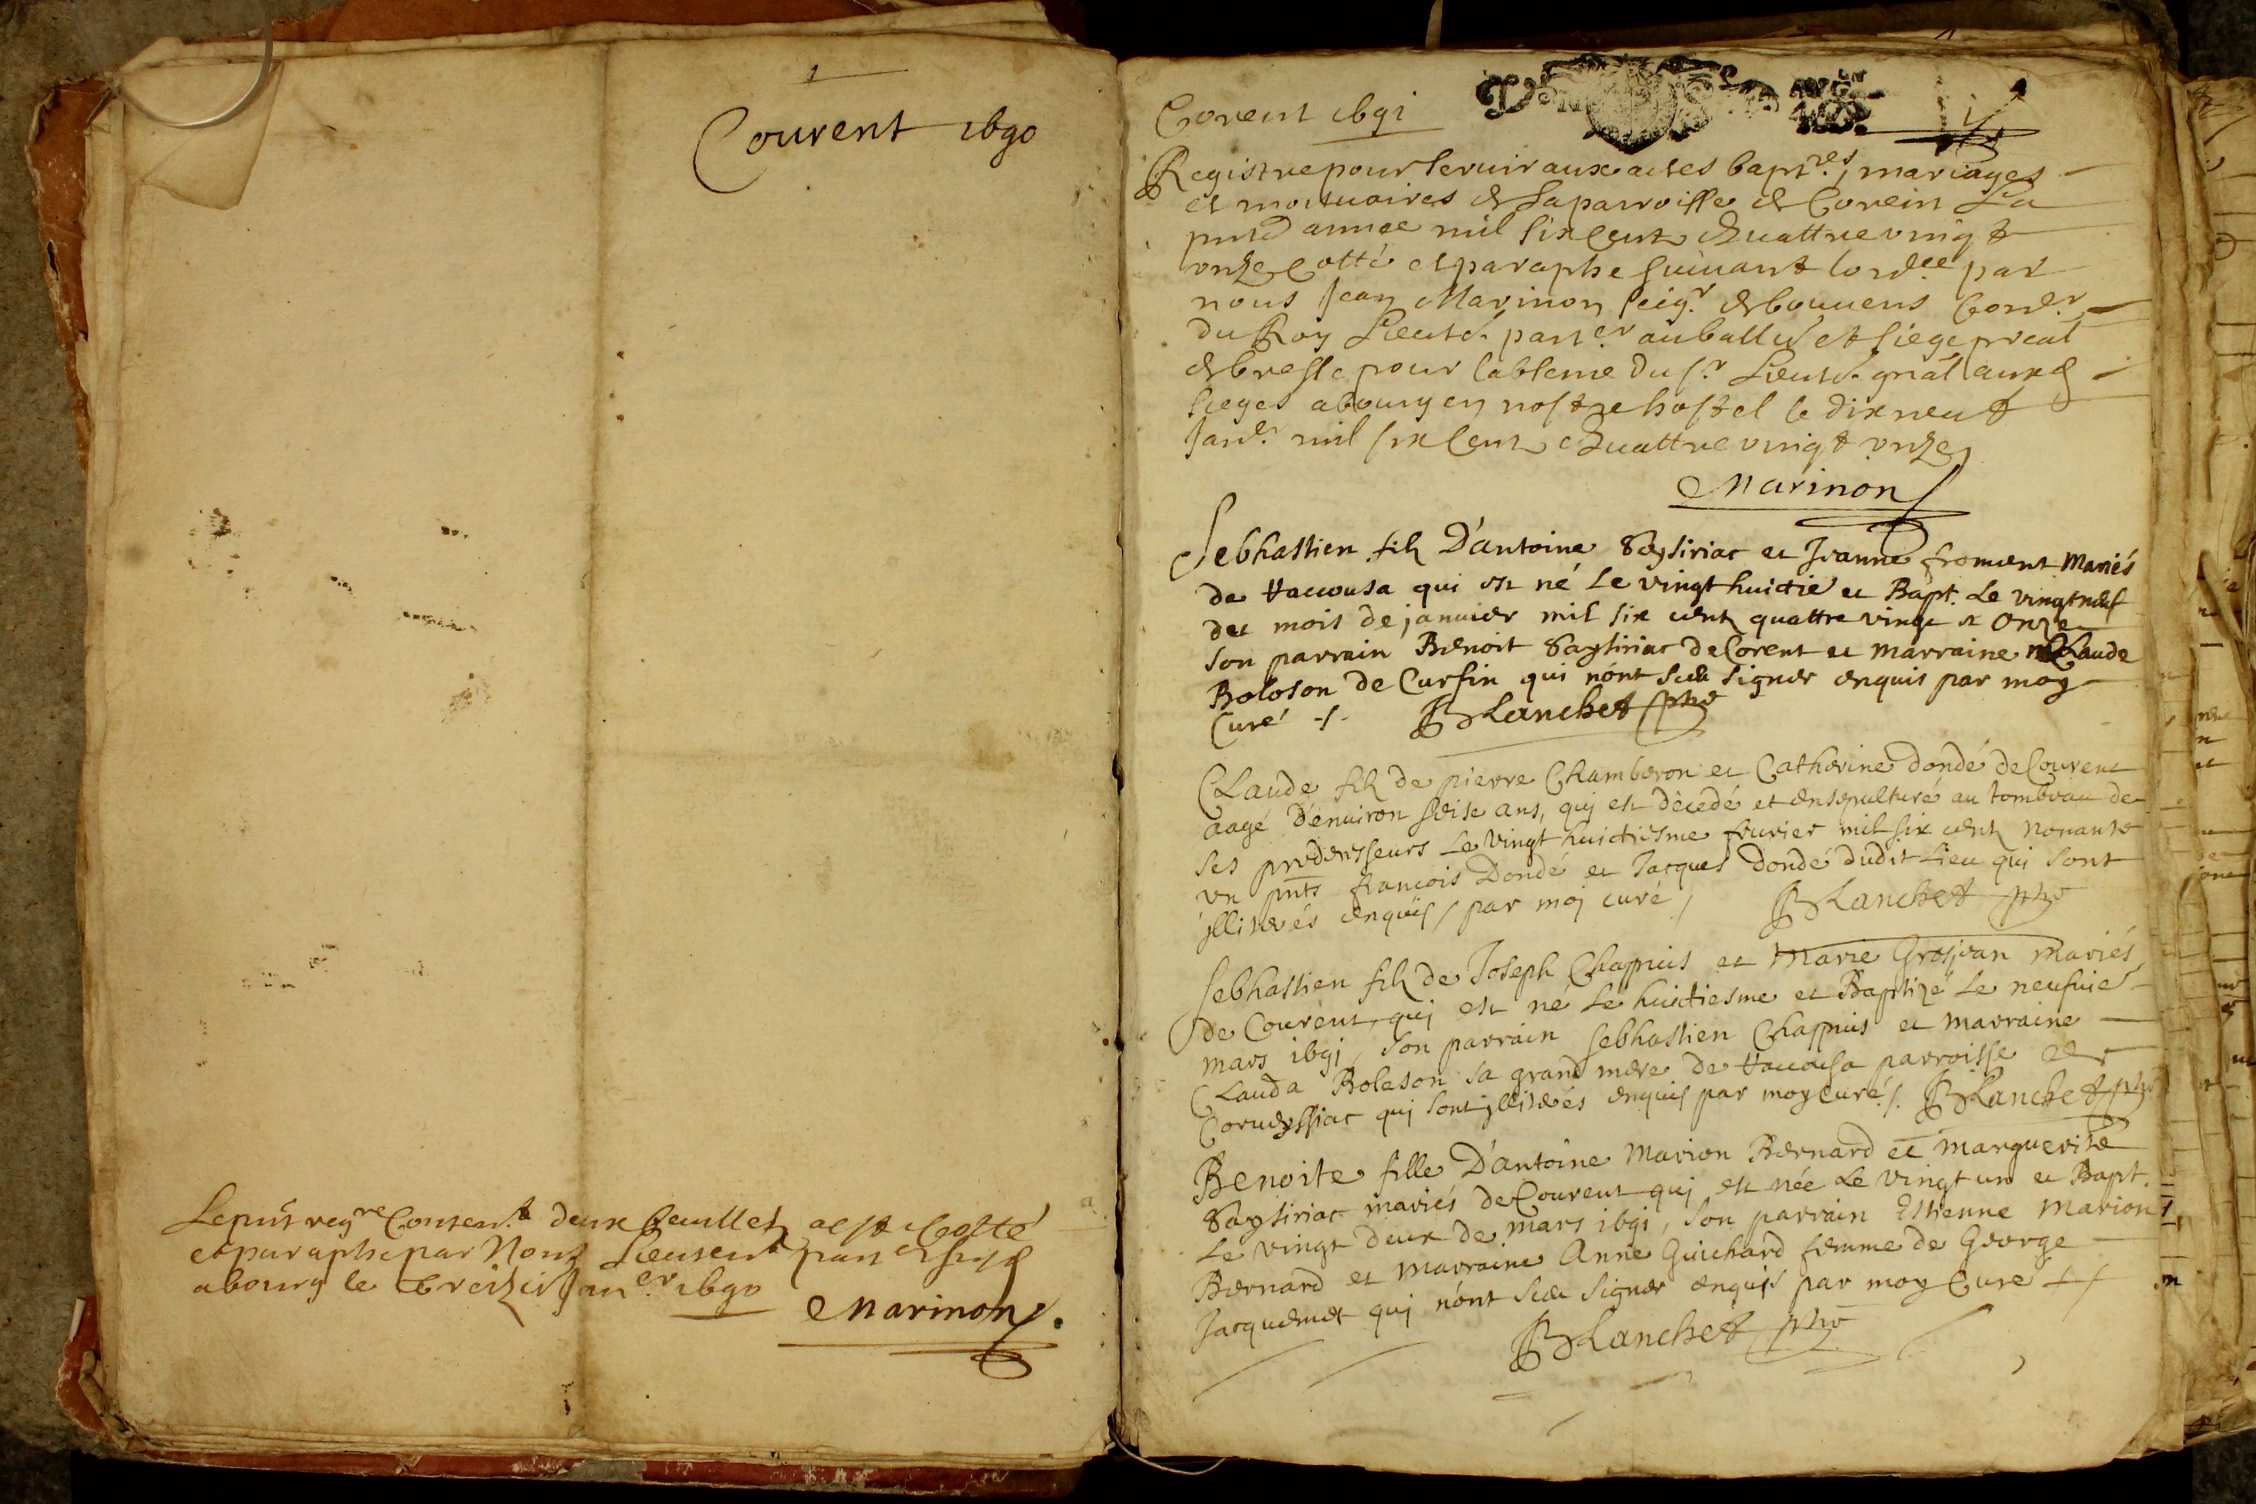 Courent 1690
Le pnt regre Content deux feuillets a este Cotté
et paraphe par Nous Lieutent parter
a bourg le treizie Janer 1690
Marinon
Corent 1691
Registre pour servir aux actes baptres, mariages
et mortuaires de la parroisse de Corein La
pnte année mil six Cent quattre vingt
onze Cotté et paraphe suivant lordce par
nous Jean Marinon seigr de bouvens Conser
du Roy Lieutt parter au balle et siege preal
de bresse pour labsence du sr Lieutt gnal auxd
sieges a bourg en nostre hostel le dix neuf
Janer mil six Cent quattre vingt onze
Marinon
Sebhastien filz D'antoine Saysiriac et Jeanne froment Mariés
de Haccousa qui est né Le vingt huictie et Bapt. Le vingt neuf
du mois de januier mil six centz quattre vingt et Onze
son parrain Benoit Saysiriac de Corent et marraine Claude
Boloson de Cursin qui n'ont sceu signer enquis par moy
Curé -/- BLanchet ptre
CLaude filz de pierre Chamberon et Catherine dondé de Courent
aagé D'enuiron seise ans, quj est décedé et ensepulturé au tombeau de
ses predecesseurs Le vingt huictiesme feurier mil six centz nonante
vn pnts francois Dondé et Jacques dondé dudit Lieu qui sont
jlliterés enquis par moj curé / BLanchet ptre
Sebhastien filz de Joseph Chappuis et Marie Grosjean mariés
de Courent, quj est né Le huictiesme et Baptizé Le neufuie
mars 1691, son parrain sebhastien Chappuis et marraine
CLauda Boleson sa grand mere de Haccousa parroisse de
Corueyssiac quj sont jlliterés enquis par moy Curé /. BLanchet ptre
Benoite fille D'antoine Marion Bernard et marguerite
Saysiriac mariés de Courent quj est née Le vingt un et Bapt.
Le vingt deux de mars 1691, son parrain Estienne Marion
Bernard et marraine Anne Guichard femme de George
Jacquemet quj n'ont sceu signer enquis par moy Cure
BLanchet ptre